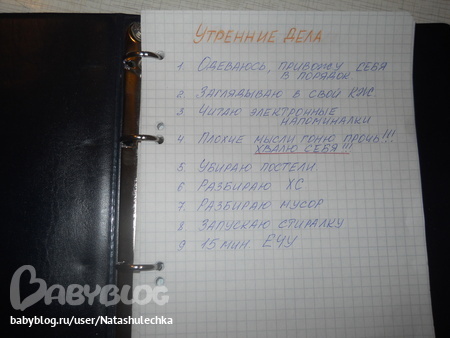 УТРЕННИЕ ДЕЛА
1. ОДЕВАЮСЬ, ПРИВОЖУ СЕБЯ
В ПОРЯДОК
2. ЗАГЛЯДЫВАЮ В СВОЙ КЖ
3. ЧИТАЮ ЭЛЕКТРОННЫЕ
НАПОМИНАЛКИ
4. ПЛОХИЕ МЫСЛИ ГОНЮ ПРОЧЬ!!!
ХВАЛЮ СЕБЯ!!!
5. УБИРАЮ ПОСТЕЛИ
6 РАЗБИРАЮ ХС
7. РАЗБИРАЮ МУСОР
8 ЗАПУСКАЮ СТИРАЛКУ
9 15 МИН ЕЧУ
BABYBLOG
babyblog.ru/user/Natashulechka